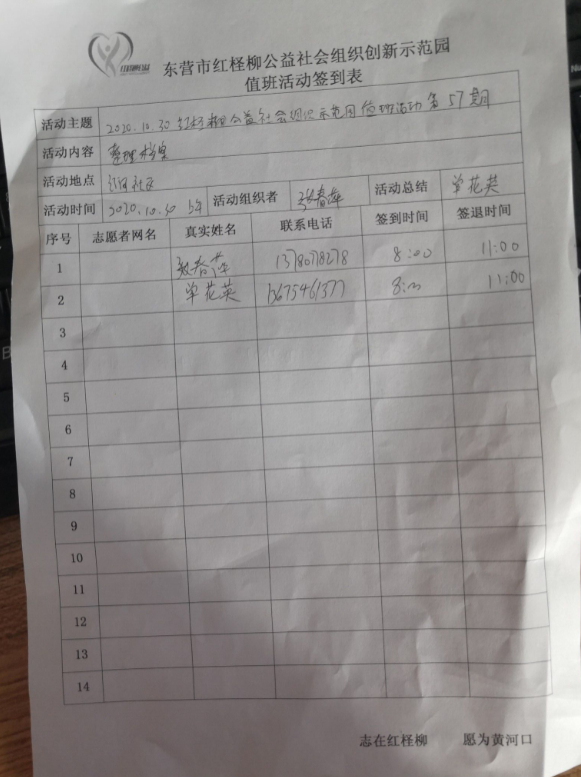 东营市红柽柳公益社会组织创新示范园
值班活动签到表
活动主题 2020.10.30红柽柳公益社会组织示范园值班活动第57期
活动内容 整理
活动地点 社区
活动时间 2020.10.30 活动组织者 张春萍 活动总结 单花英
序号 志愿者网名 真实姓名 联系电话 签到时间 签退时间
1 张春萍 8:00 11:00
2 单花英 13675461377 8:00 11:00
3
4
5
6
7
8
9
10
11
12
13
14
志在红柽柳 愿为黄河口